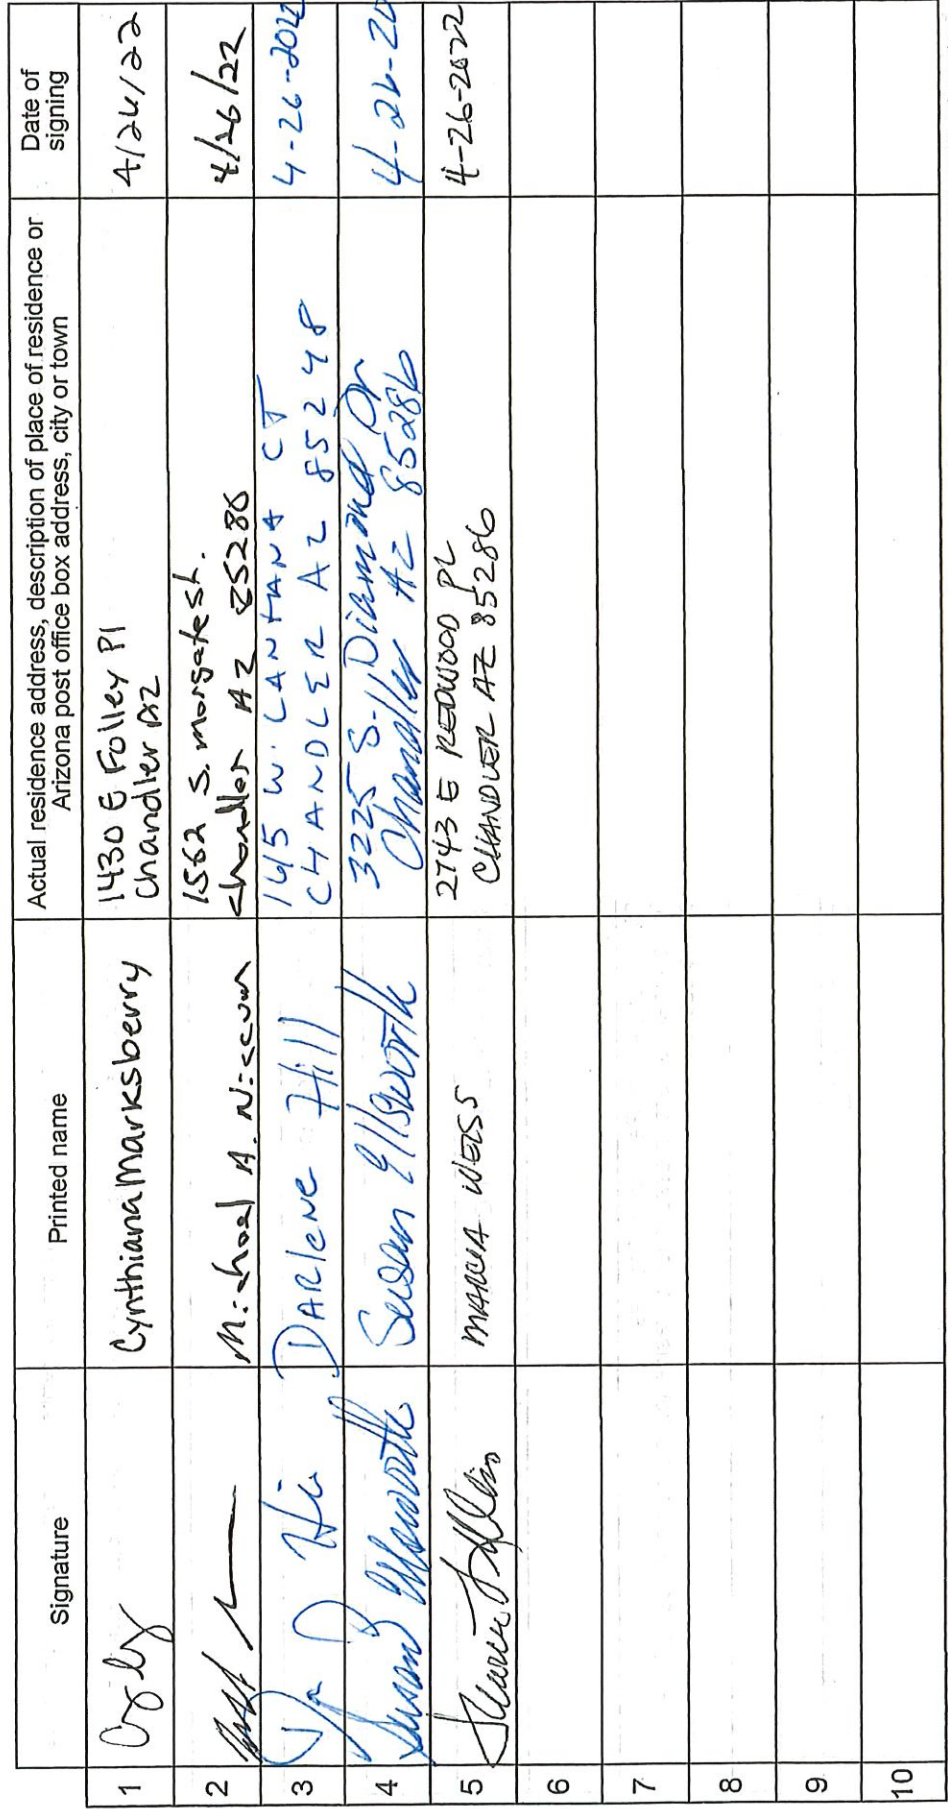 Signature
Printed name
Actual residence address, description of place of residence or
Arizona post office box address, city or town
Date of
signing
1
Cynthiana Marksberry
1430 E Folley Pl
Chandler AZ
4/26/22
2
Michael A. Niccum
1562 S.
Chandler AZ 85286
4/26/22
3
Hill
DARleNe Hill
1615 W. LANTANA CT
CHANDLER AZ 85248
4-26-2022
4
Susan Ellsworth
Susan Ellsworth
3225 S. Diamond Dr
Chandler AZ 85286
4-26-20
5
MARCIA WEISS
2743 E REDWOOD PL
CHANDLER AZ 85286
4-26-2022
6
7
8
9
10